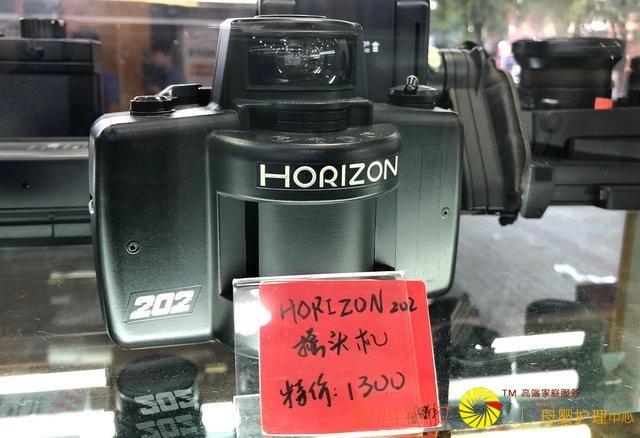 HORIZON
202
HORIZON 202
摇头机
特价:1300
TM 高端家庭服务
母婴护理中心